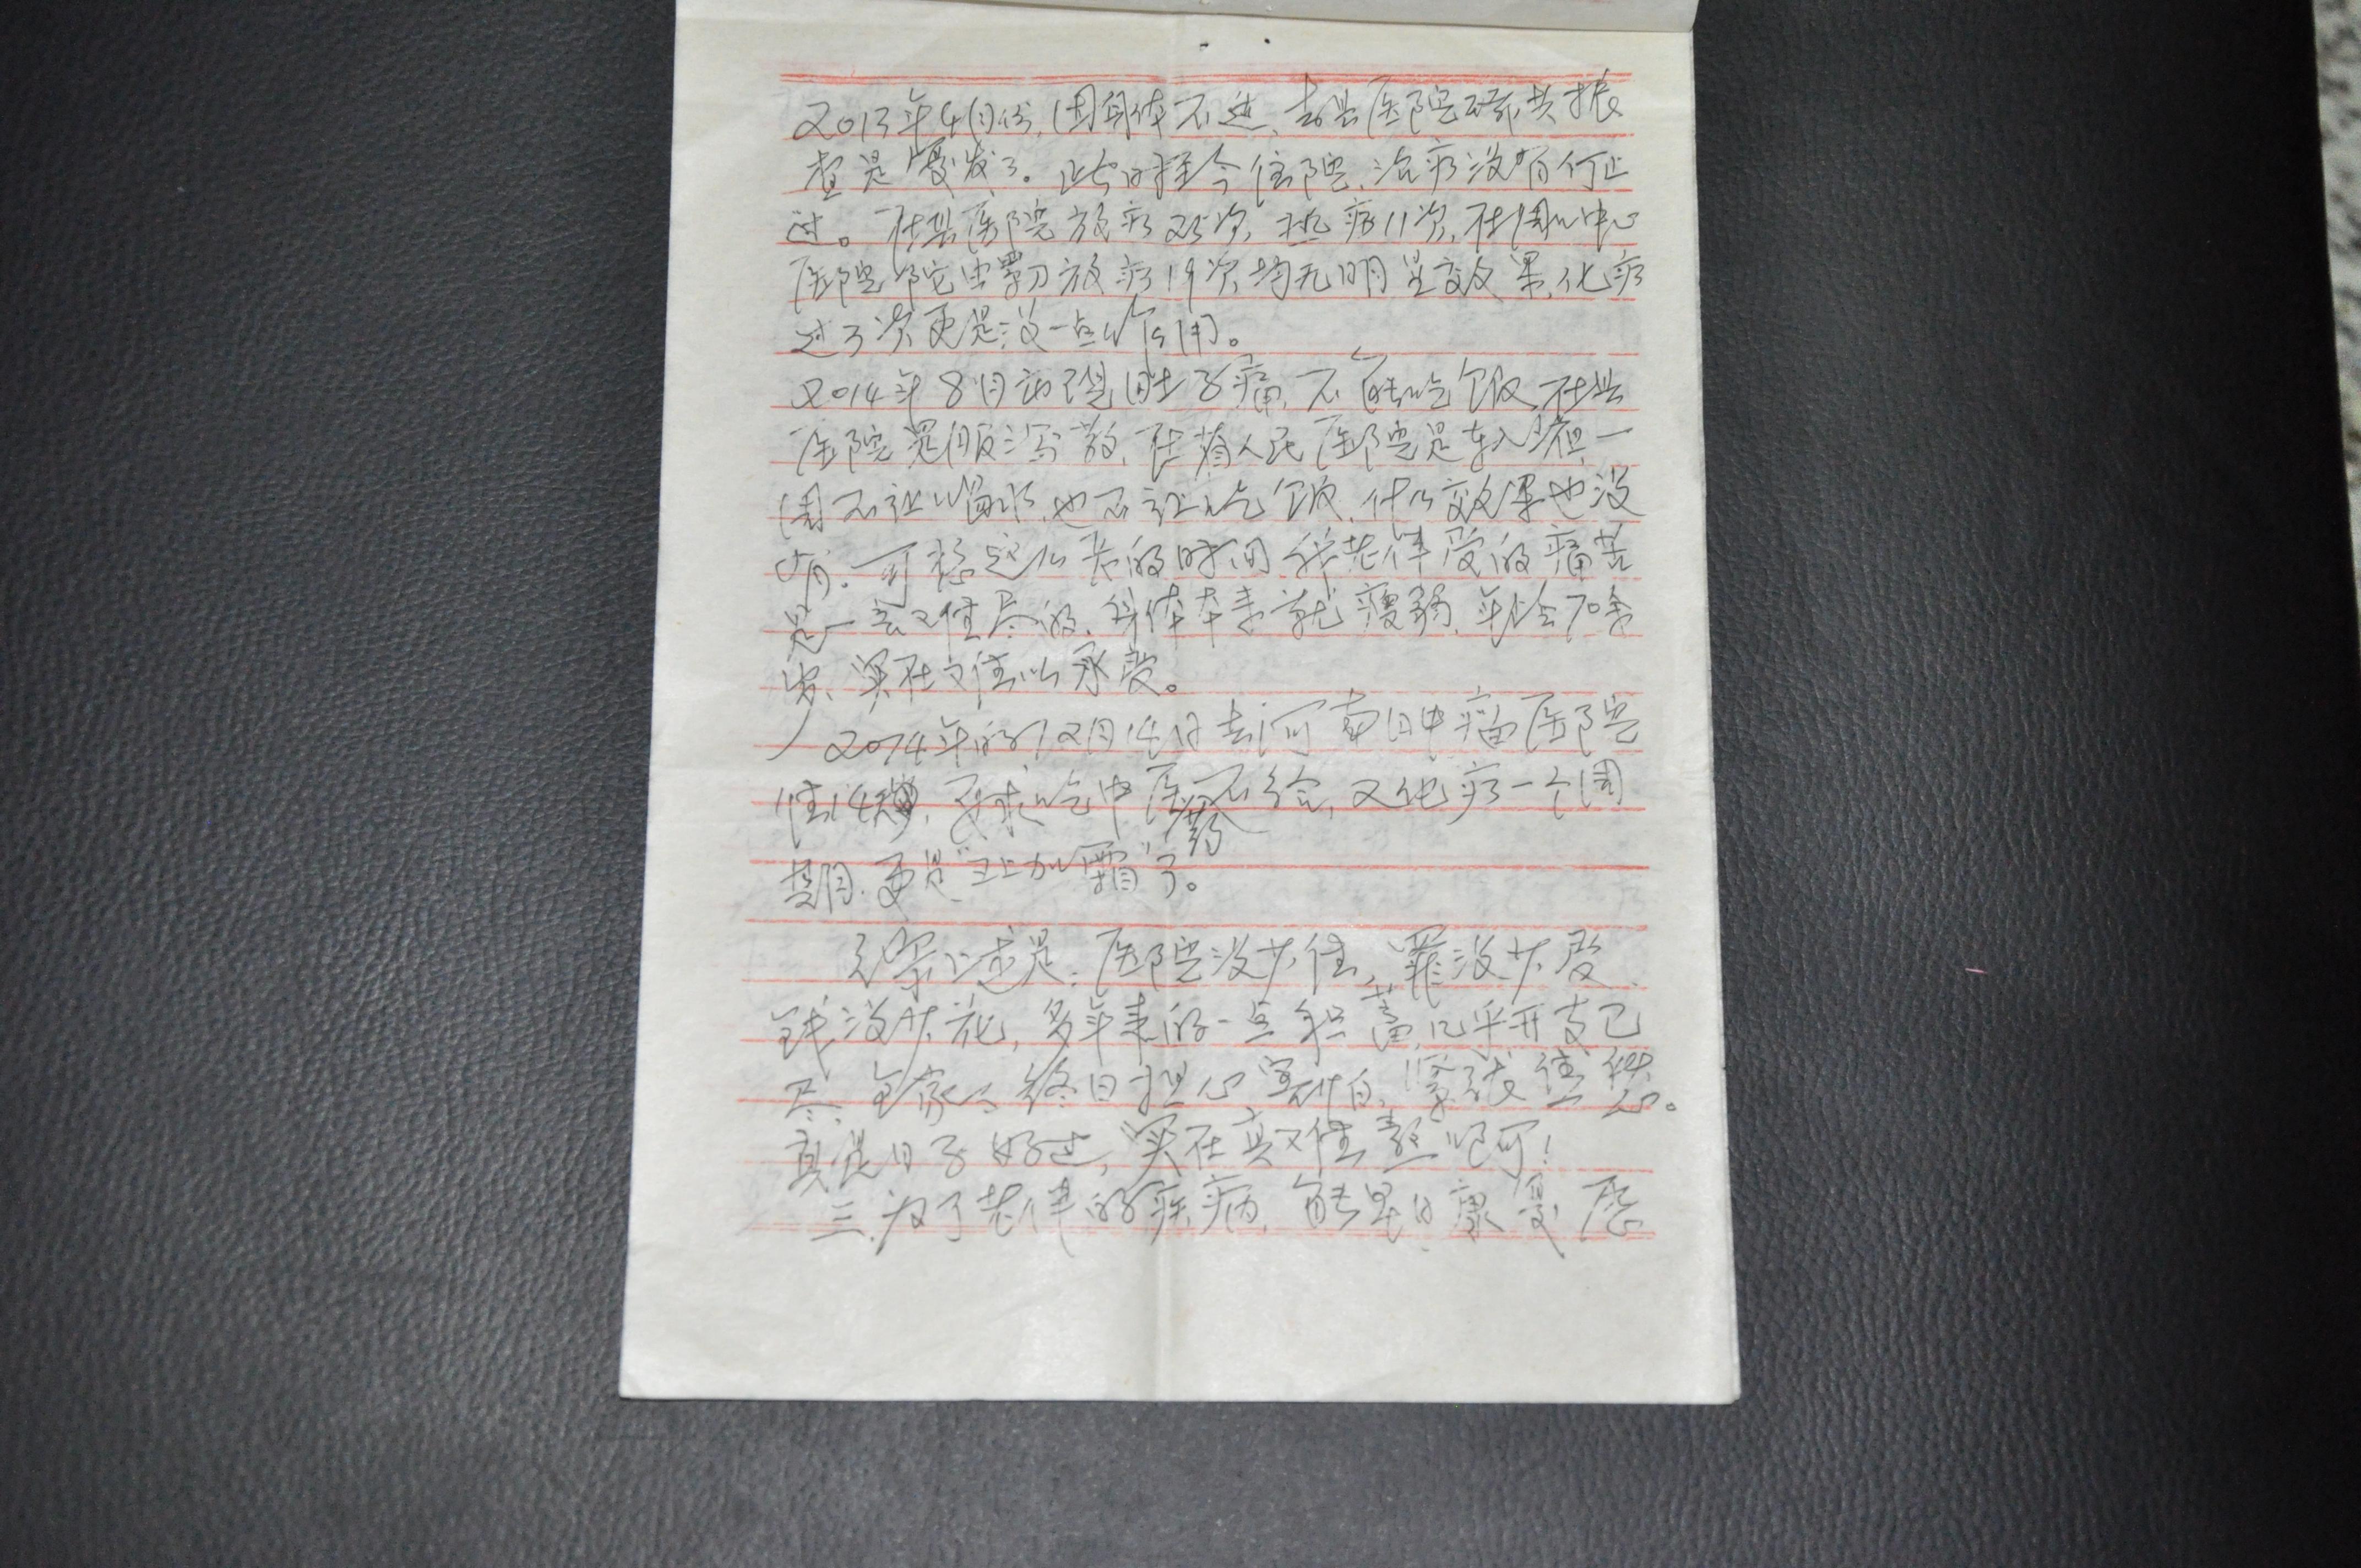 2013年4月份,因身体不适,去县医院磁共振
查是复发了。此时至今住院,治疗没有停止
过。在县医院放疗25次,热疗11次,在周口中心
医院陀螺刀放疗19次均无明显效果,化疗
过3次更是没一点作用。
2014年8月初是肚子痛,不能吃饭,在县
医院是服泻药,在省人民医院是插入管,一
周不让喝水,也不让吃饭,什么效果也没
有。可想这么长的时间我老伴受的痛苦
是一言难尽的,身体本来就瘦弱,年令70余
岁,实在难以承受。
2014年的12月14日去河南中 医院
住14天,要求吃中医药不给,又化疗一个周
期,更是"雪上加霜"了。
综上述是:医院没少住,罪没少受,
钱没少花,多年来的一点积蓄,几乎开支已
尽,全家人终日担心害怕,紧张
真是日子好过,实在真难熬啊!
三.为了老伴的疾病,能早日康复,愿